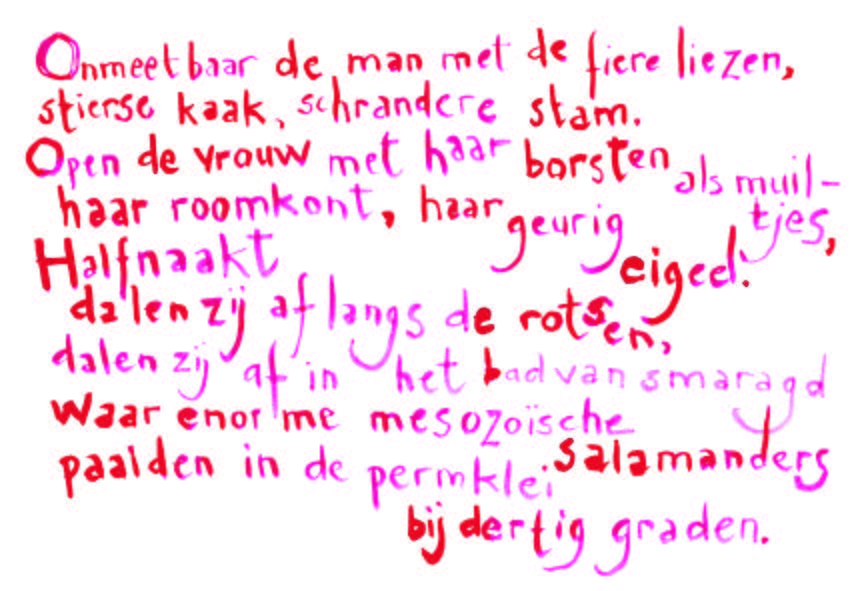 Onmeetbaar de man met de fiere liezen,
stierse kaak, schrandere stam.
Open de vrouw met haar borsten als muil-
tjes,
haar roomkont, haar geurig eiged.
Halfnaakt
dalen zij af langs de rotsen,
dalen zij af in het bad van smaragd
waar enorme mesozoïsche salamanders
paalden in de permklei
bij dertig graden.